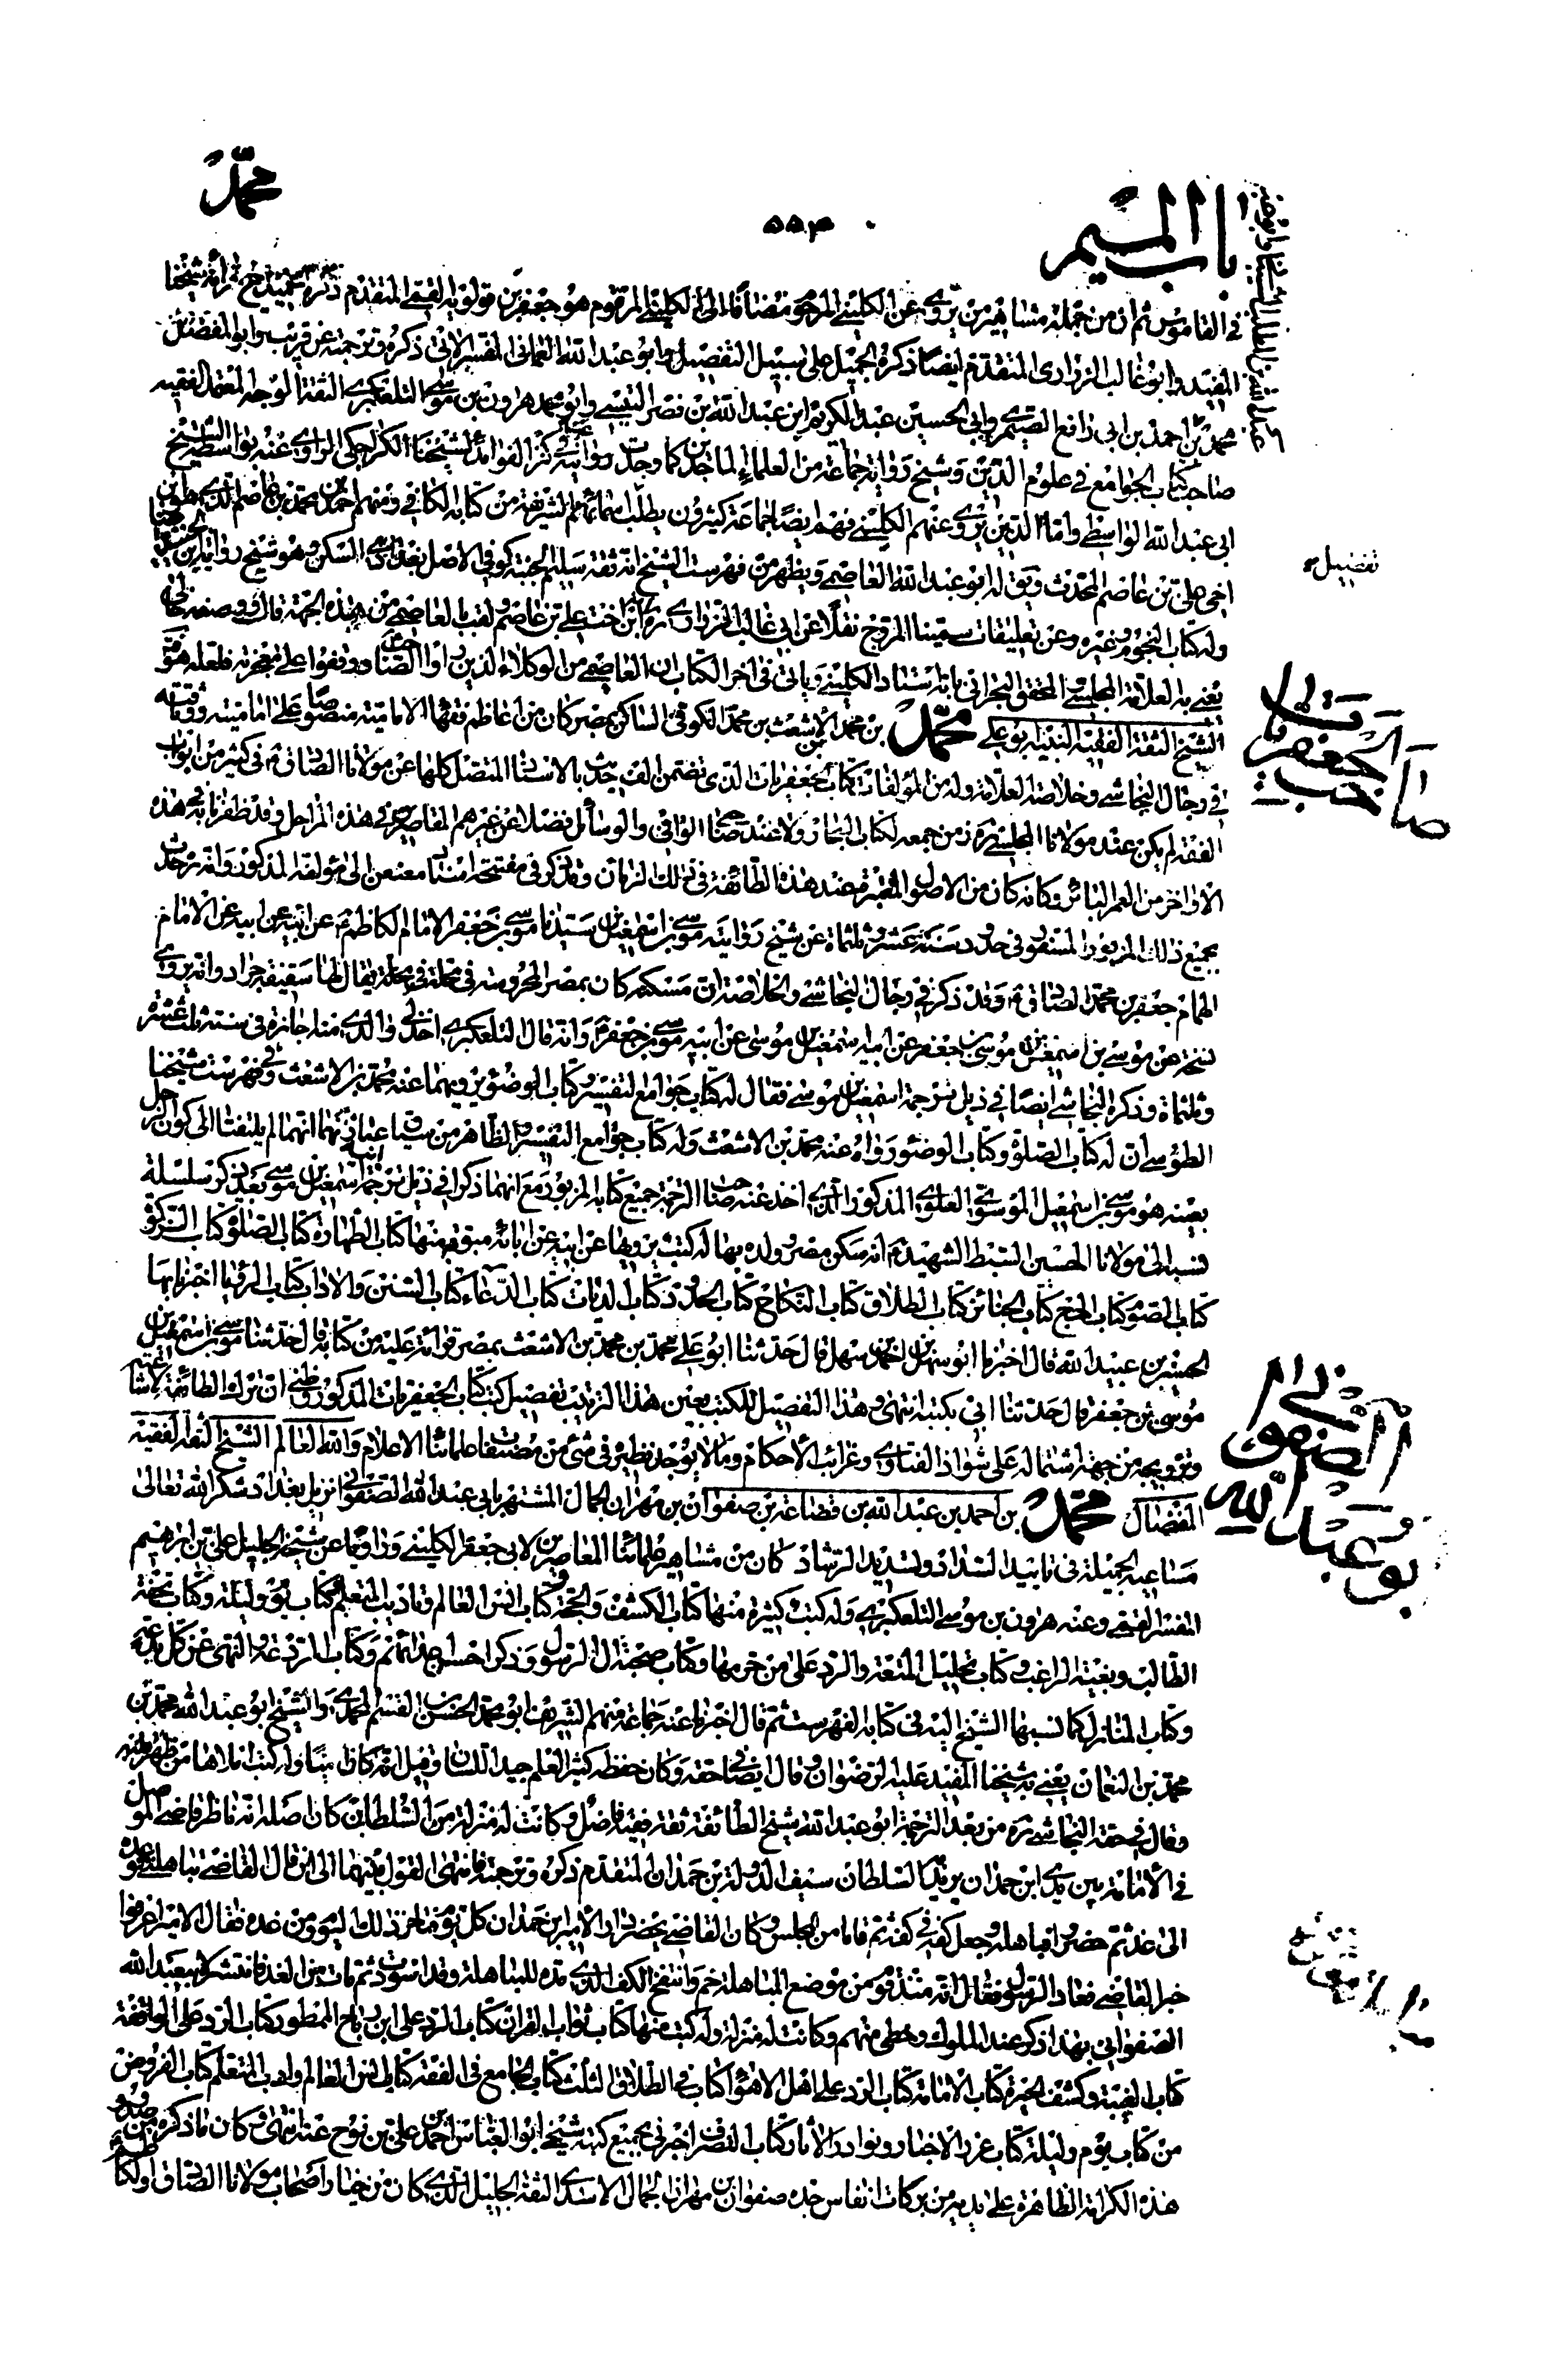 باب الميم
۵۵۳
محمّد
في القاموس ثم ان من جملة مشاهير من يروى عن الكلينى المرحوم مضافا الى الكلينى المرقوم هو جعفر بن قولويه القمى المتقدم ذكره شيخنا
المفيد وابو غالب الزرارى المتقدم ايضا ذكره الجميل على سبيل التفصيل وابو عبد الله النعمانى المفسر الاتى ذكره وترجمته عن قريب وابو المفضل
محمد بن احمد بن ابى رافع الصيمرى وابى الحسين عبد الكريم ابن عبد الله بن نصر التنيسى وابو محمد هرون بن موسى التلعكبرى الثقة الوجه المعتمد الفقيه
صاحب كتاب الجوامع في علوم الدين وشيخ رواية جماعة من العلماء الماجدين كما وجدت روايته في كنز الفوائد لشيخنا الكراجكى الراوى عنه بواسطة الشيخ
ابى عبد الله الواسطى واما الذين يروى عنهم الكلينى فهم ايضا جماعة كثيرون يطلب اسمائهم الشريفة من كتابه الكافى ومنهم احمد بن محمد بن عاصم الذى هو ابن
اخى على بن عاصم المحدث ويق له ابو عبد الله العاصمى ويظهر من فهرست الشيخ انه ثقة سليم الجنبة كوفى الاصل بغدادى المسكن وهو شيخ رواية ابن الجنيد
وله كتاب النجوم وغيره وعن تعليقات سمينا المروج نقلا عن ابى غالب الزرارى ره انه ابن اخت على بن عاصم ولقب العاصمى من هذه الجهة قال وفى وصفه خالى
يعنى به العلامة المجلسى والمحقق البحرانى بانه استاد الكلينى وياتى فى اخر الكتاب ان العاصمى من الوكلاء الذين راوا الصاحب ووقفوا على معجزته فلعله هو
الشيخ الثقة الفقيه النبيه ابو على محمّد بن محمد بن الاشعث بن محمد الكوفى الساكن بمصر كان من اعاظم فقهاء الامامية منصوصا على اماميته وثقته
فى رجال النجاشى وخلاصة العلامة وله من المؤلفات كتاب الجعفريات الذى تضمن الف حديث بالاسناد المتصل كلها عن مولانا الصادق فى كثير من ابواب
الفقه لم يكن عند مولانا المجلسى ره زمن جمعه لكتاب البحار ولا عند صاحبى الوافى والوسائل فضلا عن غيرهم المقاصرين فى هذه المراحل وقد ظفرنا به فى هذه
الاواخر من العمر البائر وكانه كان من الاصول المعتبرة عند هذه الطائفة فى تلك الزمان وقد ذكر فى مفتتحه اسنادا معنعن الى مؤلفه المذكور وانه حدث
بجميع ذلك المزبور المسفور فى حدود سنة عشر وثلثماة عن شيخ روايته موسى بن اسمعيل بن سيدنا موسى بن جعفر الامام الكاظم عن ابيه عن ابيه عن الامام
الهمام جعفر بن محمد الصادق وقد ذكر فى رجال النجاشى والخلاصة ان مسكنه كان بمصر المحروسة فى محلة يقال لها سقيفة جواد وانه يروى
نسخة عن موسى بن اسمعيل بن موسى بن جعفر عن ابيه اسمعيل بن موسى عن ابيه موسى بن جعفر وانه قال التلعكبرى اخذ لى والدى منه اجازة فى سنة ثلث عشر
وثلثماة وذكر النجاشى ايضا في ذيل ترجمة اسمعيل بن موسى فقال له كتاب جوامع التفسير وكتاب الوضوء يرويهما عنه محمد بن الاشعث وفى فهرست شيخنا
الطوسى ان له كتاب الصلوة وكتاب الوضوء رواه عنه محمد بن الاشعث وله كتاب جوامع التفسير والظاهر من سياق عباتيهما انهما لم يلتفتا الى كون الرجل
بعينه هو موسى بن اسمعيل الموسوى العلوى المذكور الذى اخذ عنه صاحب الترجمة جميع كتابه المزبور مع انهما ذكرا فى ذيل ترجمة ابيه اسمعيل بن موسى بعد ذكر سلسلة
نسبه الى مولانا الحسين السبط الشهيد انه سكن مصر وولده بها له كتب يرويها عن ابيه عن ابائه مبوبة منها كتاب الطهارة كتاب الصلوة كتاب الزكوة
كتاب الصوم كتاب الحج كتاب الجنائز كتاب الطلاق كتاب النكاح كتاب الحدود كتاب الديات كتاب الدعاء كتاب السنن والاداب كتاب الرؤيا اخبرنا بها
الحسين بن عبيد الله قال اخبرنا ابو محمد سهل بن احمد بن سهل قال حدثنا ابو على محمد بن محمد بن الاشعث بمصر قرائة عليه من كتابه قال حدثنا موسى بن اسمعيل بن
موسى بن جعفر قال حدثنا ابى بكتبه انتهى وهذا التفصيل للكتب بعين هذا الترتيب تفصيل كتب كتاب الجعفريات المذكور وظنى ان ترك الطائفة لاشاعته
وترويجه من جهة اشتماله على شواذ الفتاوى وغرائب الاحكام وما لا يوجد نظيره فى شئ من مصنفات علمائنا الاعلام والله العالم الشيخ الثقة الفقيه
المفضال محمّد بن احمد بن عبد الله بن قضاعة بن صفوان بن مهران الجمال المشتهر بابى عبد الله الصفوانى نزيل بغداد شكر الله تعالى
مساعيه الجميلة فى تاييد السداد وتسديد الرشاد كان من مشاهير علمائنا المعاصرين لابى جعفر الكلينى وراويا عن شيخه الجليل على بن ابرهيم
المفسر القمى وعنه هرون بن موسى التلعكبرى وله كتب كثيرة منها كتاب الكشف والحجة وكتاب انس العالم وتاديب المتعلم وكتاب يوم وليلة وكتاب تحفة
الطالب وبغية الراغب وكتاب تحليل المتعة والرد على من حرمها وكتاب صحبة ال الرسول وذكر احن اعدائهم وكتاب الردعة والنهى عن كل بدعة
وكتاب المنازل كما نسبها الشيخ اليه فى كتابه الفهرست ثم قال اخبرنا عنه جماعة منهم الشريف ابو محمد الحسن بن القسم المحمدى والشيخ ابو عبد الله محمد بن
محمد بن النعمان يعنى به شيخنا المفيد عليه الرضوان وقال ايضا فى حقه وكان حفظه كثير العلم جيد اللسان وقيل انه كان اميّا وله كتب املاها من ظهر قلبه
وقال فى حقه النجاشى ره من بعد الترجمة ابو عبد الله شيخ الطائفة ثقة فقيه فاضل وكانت له منزلة من السلطان كان اصلها انه ناظر قاضى الموصل
فى الامامة بين يدى ابن حمدان يريد السلطان سيف الدولة بن حمدان المتقدم ذكره وترجمته فانتهى القول بينهما الى ان قال للقاضى تباهلنى فوعده
الى غد ثم حضروا فباهله وجعل كفه فى كفه ثم قاما من المجلس وكان القاضى يحضر دار الامير ابن حمدان كل يوم فتاخر ذلك اليوم ومن غده فقال الامير اعرفوا
خبر القاضى فعاد الرسول فقال انه منذ قام من موضع المباهلة حم وانتفخ الكف الذى مده للمباهلة وقد اسودت ثم مات من الغد فانتشر لابى عبد الله
الصفوانى بهذا ذكر عند الملوك وحظى منهم وكانت له منزلة وله كتب منها كتاب ثواب القران كتاب الرد على ابن رباح الممطور كتاب الرد على الواقفة
كتاب الغيبة وكشف الحيرة كتاب الامامة كتاب الرد على اهل الاهواء كتاب فى الطلاق الثلث كتاب الجامع فى الفقه كتاب انس العالم وادب المتعلم كتاب الفروض
من كتاب يوم وليلة كتاب غرر الاخبار ونوادر الاثار كتاب التصرف اخبرنى بجميع كتبه شيخى ابو العباس احمد بن على بن نوح عنه انتهى وكان ما ذكره من صدور
هذه الكرامة الظاهرة على يديه من بركات انفاس جده صفوان بن مهران الجمال الاسدى الثقة الجليل الذى كان من خيار اصحاب مولانا الصادق
تفضيل
صاحب الجعفريات
ابو عبد الله الصفوانى